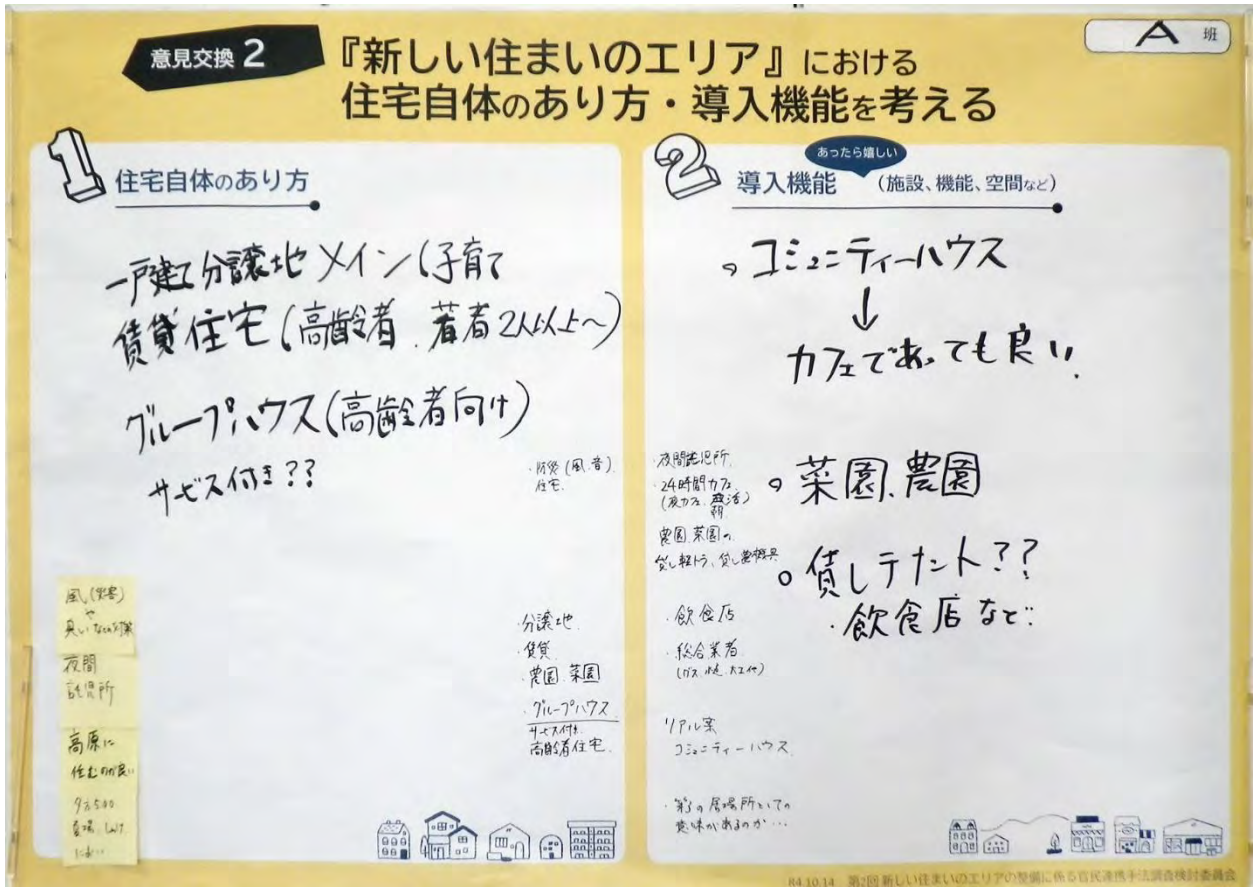 A 班
意見交換 2
『新しい住まいのエリア』における
住宅自体のあり方・導入機能を考える
1
住宅自体のあり方
一戸建て分譲地メイン(子育て
賃貸住宅(高齢者、若者2人以上~)
グループハウス(高齢者向け)
サービス付き??
・防災(風、音)
住宅
・分譲地
・賃貸
・農園、菜園
・グループハウス
サービス付き
高齢者住宅
風(災害)
や
臭いなどの対策
夜間
託児所
高原に
住むのが良い
2
あったら嬉しい
導入機能
(施設、機能、空間など)
。コミュニティーハウス
↓
カフェであっても良い
・夜間託児所
・24時間カフェ
農園、菜園の
貸し軽トラ、貸し農機具
・飲食店
・総合業者
リアル案
コミュニティーハウス
・第3の居場所としての
意味があるのか…
。菜園、農園
。貸しテナント??
・飲食店など
R4.10.14 第2回 新しい住まいのエリアの整備に係る官民連携手法調査検討委員会